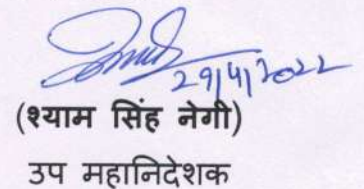 29/4/2022
(श्याम सिंह नेगी)
उप महानिदेशक